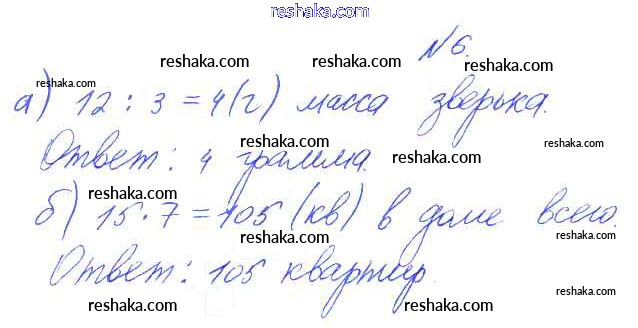 reshaka.com
№6.
а) 12 : 3 = 4(г) масса зверька.
Ответ: 4 грамма.
б) 15 · 7 = 105 (кв) в доме всего.
Ответ: 105 квартир.
reshaka.com reshaka.com reshaka.com
reshaka.com reshaka.com
reshaka.com reshaka.com reshaka.com
reshaka.com reshaka.com reshaka.com
reshaka.com reshaka.com reshaka.com
reshaka.com reshaka.com reshaka.com